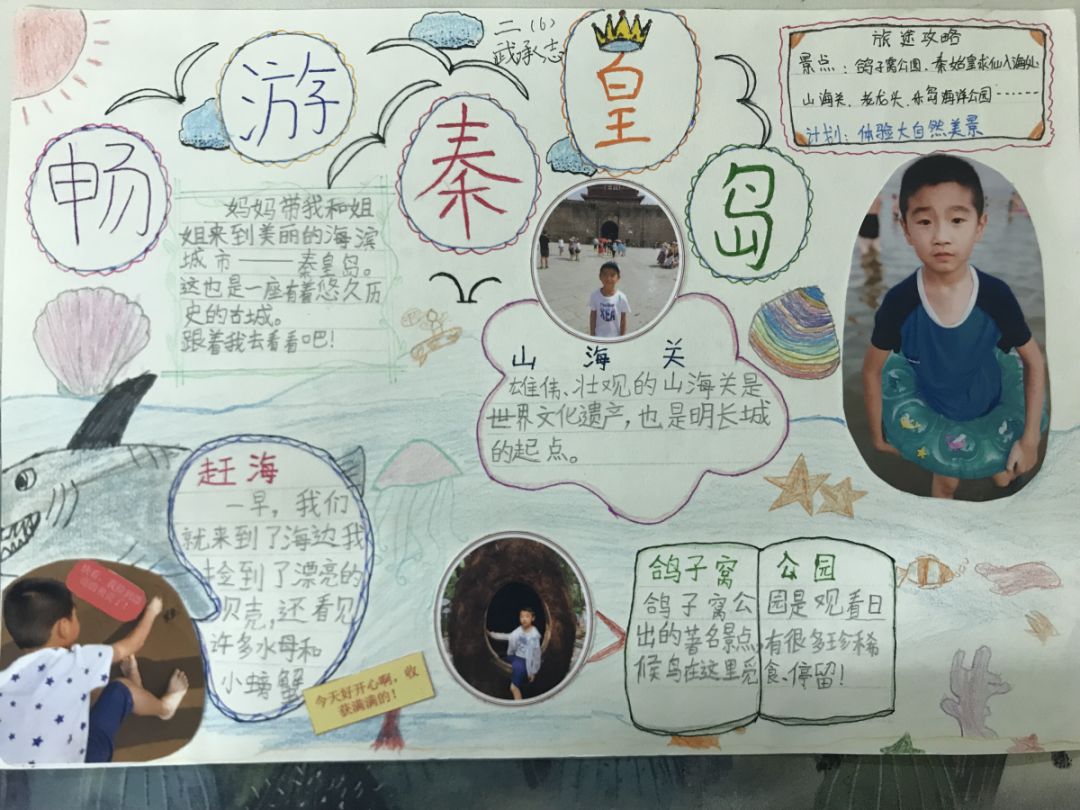 畅游秦皇岛
二（6）
武承志
旅途攻略
景点：鸽子窝公园、秦始皇求仙入海处
山海关、老龙头、乐岛海洋公园……
计划：体验大自然美景
妈妈带我和姐
姐来到美丽的海滨
城市——秦皇岛。
这也是一座有着悠久历
史的古城。
跟着我去看看吧！
山海关
雄伟、壮观的山海关是
世界文化遗产，也是明长城
的起点。
赶海
一早，我们
就来到了海边我
捡到了漂亮的
贝壳，还看见
许多水母和
小螃蟹
今天好开心啊，收
获满满的！
鸽子窝公园
鸽子窝公园是观看日
出的著名景点，有很多珍稀
候鸟在这里觅食、停留！